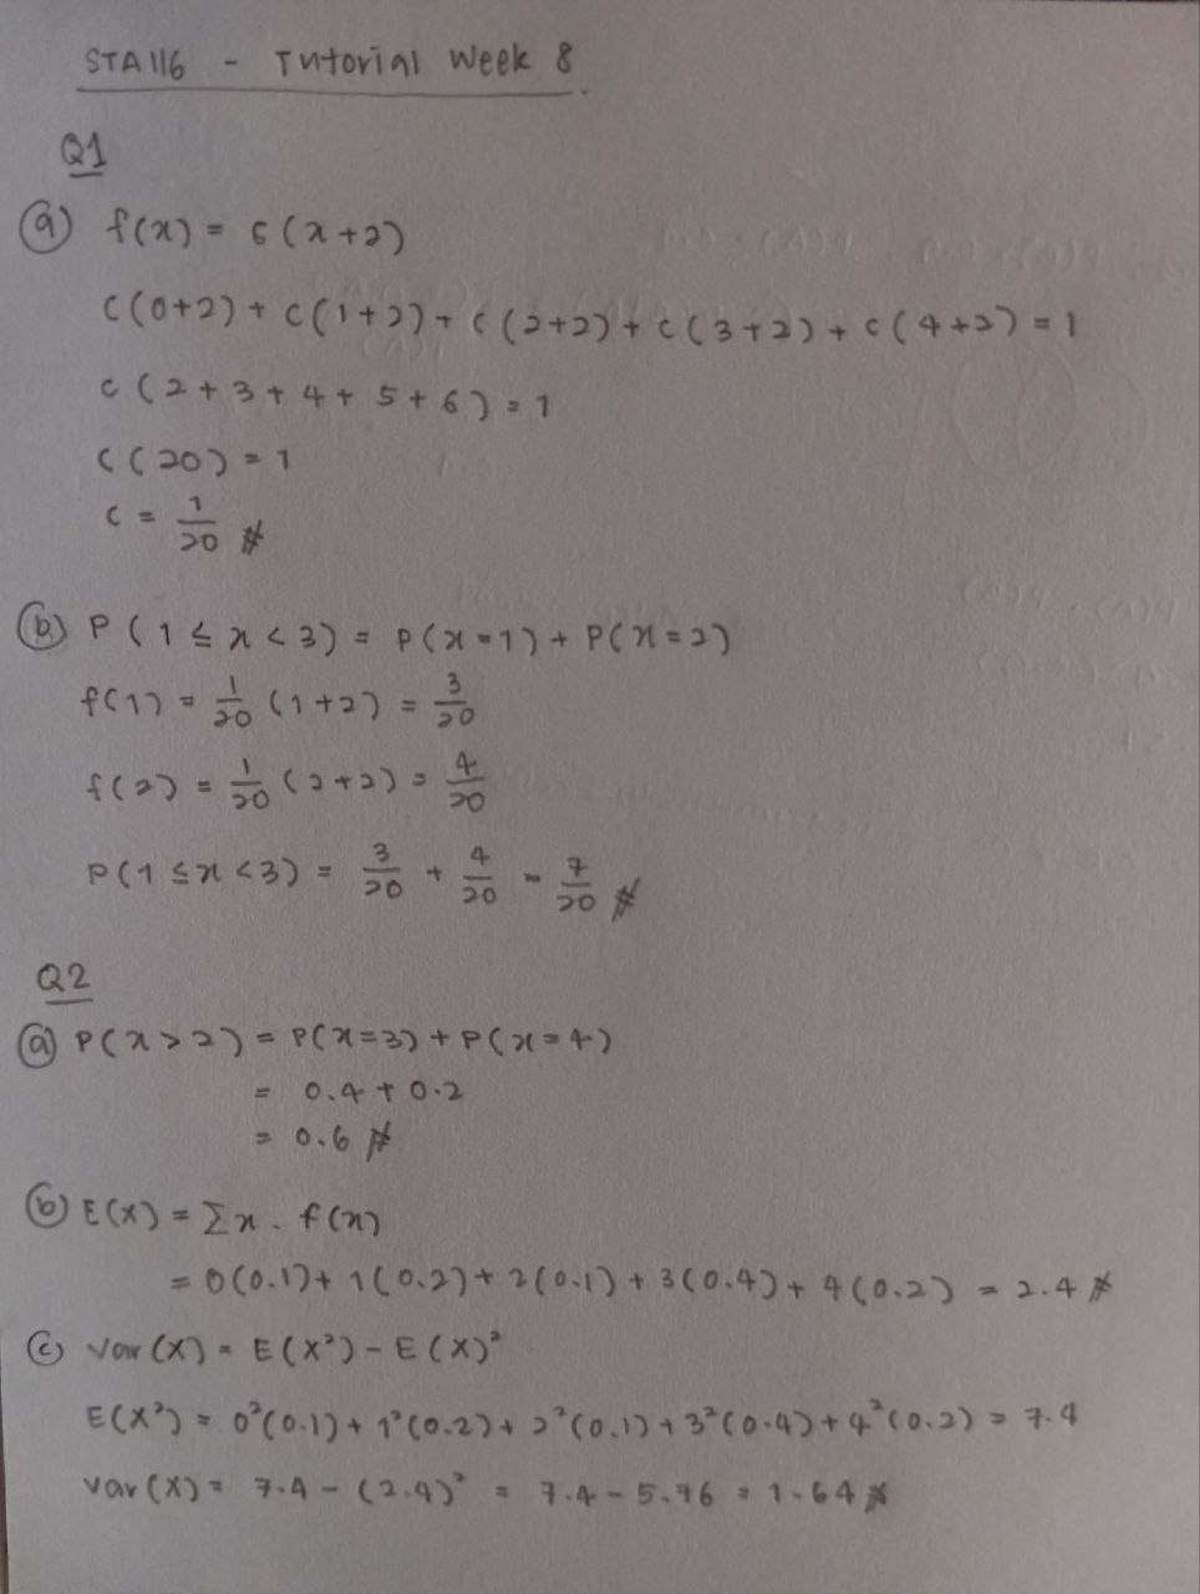 STA116 - Tutorial Week 8
Q1
(a) f(x) = c(x+2)
c(0+2) + c(1+2) + c(2+2) + c(3+2) + c(4+2) = 1
c(2+3+4+5+6) = 1
c(20) = 1
c = 1/20 #
(b) P(1 ≤ x < 3) = P(x=1) + P(x=2)
f(1) = 1/20 (1+2) = 3/20
f(2) = 1/20 (2+2) = 4/20
P(1 ≤ x < 3) = 3/20 + 4/20 = 7/20 #
Q2
(a) P(x > 2) = P(x=3) + P(x=4)
= 0.4 + 0.2
= 0.6 #
(b) E(X) = Σx . f(x)
= 0(0.1) + 1(0.2) + 2(0.1) + 3(0.4) + 4(0.2) = 2.4 #
(c) Var(X) = E(X²) - E(X)²
E(X²) = 0²(0.1) + 1²(0.2) + 2²(0.1) + 3²(0.4) + 4²(0.2) = 7.4
Var(X) = 7.4 - (2.4)² = 7.4 - 5.76 = 1.64 #